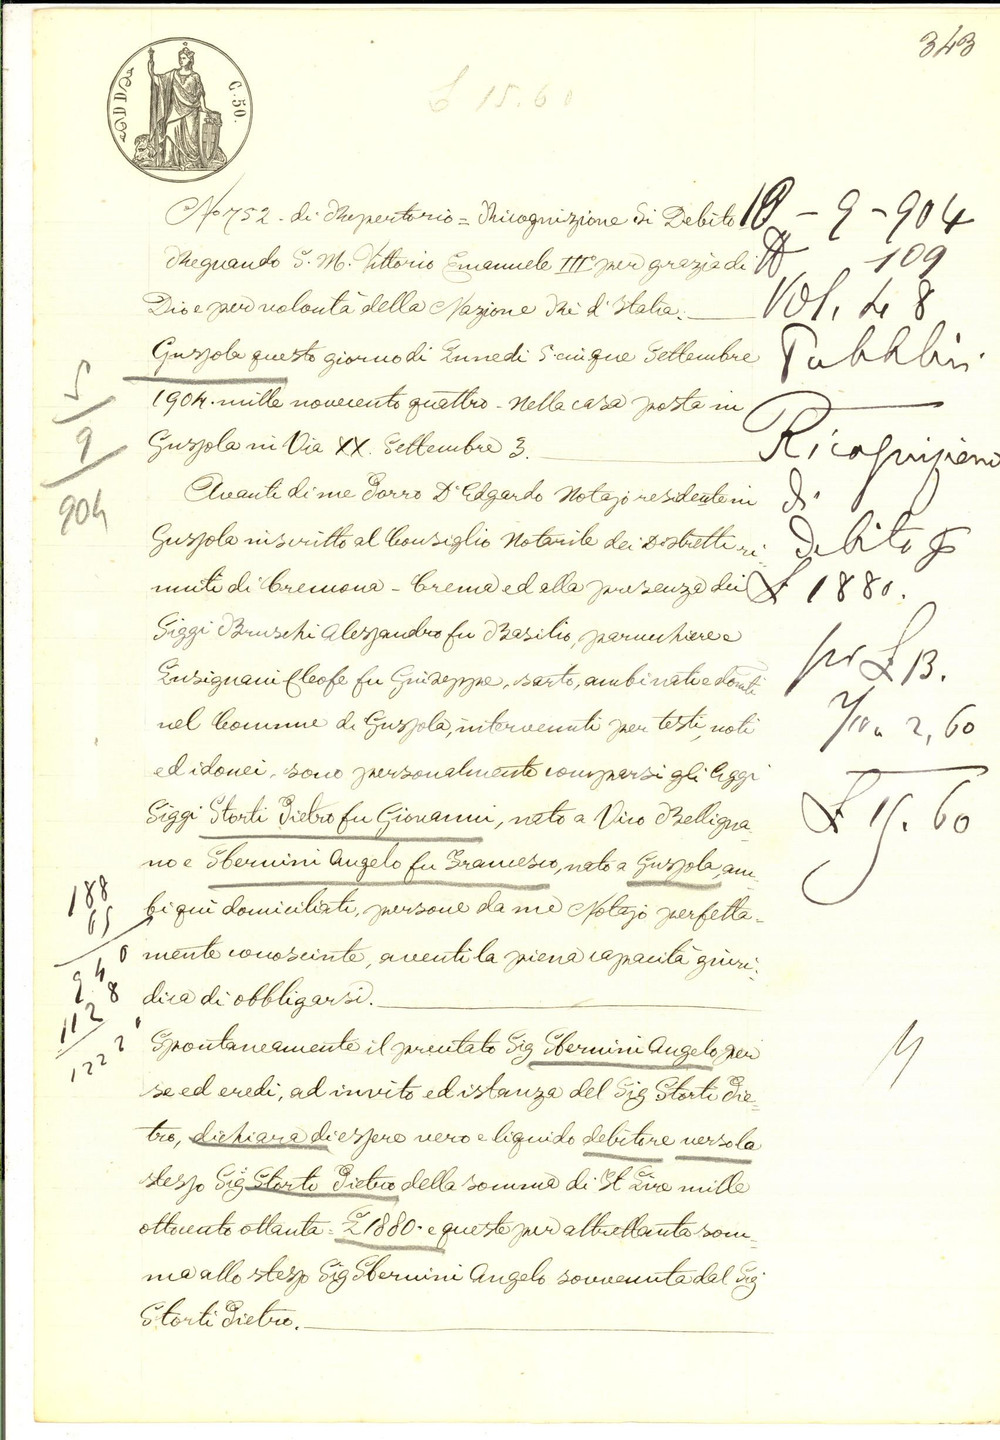 343
C. 50.
£ 15.60
No 752 - di Repertorio = Ricognizione di Debito
Regnando S. M. Vittorio Emanuele III per grazia di
Dio e per volontà della Nazione Re d'Italia.
Gussola questo giorno di Lunedì 5 cinque Settembre
1904. mille novecento quattro - Nella casa posta in
Gussola in Via XX. Settembre 3.
Avanti di me Porro Dr Edgardo Notajo residente in
Gussola inscritto al Consiglio Notarile dei Distretti ri=
uniti di Cremona - Crema ed alla presenza dei
Siggi Bruschi Alessandro fu Basilio, parucchiere e
Lusignani Cleofe fu Giuseppe, sarto, ambi nati e domti
nel Comune di Gussola, intervenuti per testi, noti
ed idonei, sono personalmente comparsi gli
Siggi Storti Pietro fu Giovanni, nato a Vico Belligna=
no e Sbernini Angelo fu Francesco, nato a Gussola, am=
bi qui domiciliati, persone da me Notajo perfetta=
mente conosciute, aventi la piena capacità giuri=
dica di obbligarsi.
Spontaneamente il prentato Sig Sbernini Angelo per
se ed eredi, ad invito ed istanza del Sig Storti Pie=
tro, dichiara di essere vero e liquido debitore verso lo
stesso Sig Storti Pietro della somma di It Lire mille
ottocento ottanta = £ 1880 - e queste per altrettanta som=
ma allo stesso Sig Sbernini Angelo sovvenuta dal Sig
Storti Pietro.
10 - 9 - 904
109
Vol. 48
Pubblici
Ricognizione
di
Debito p
£ 1880.
pr £ 13.
2/10 2,60
£ 15.60
5
9
904
188
65
940
1128
12220